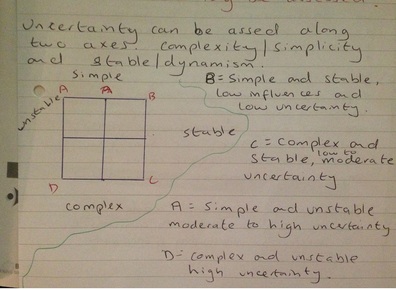 Uncertainty can be assed along
two axes. complexity/simplicity
and stable/dynamism.
simple
A A B
unstable
stable
D C
complex
B = Simple and stable,
low influences and
low uncertainty.
C = Complex and
stable, low to moderate
uncertainty
A = Simple and unstable
moderate to high uncertainty
D = complex and unstable
high uncertainty.